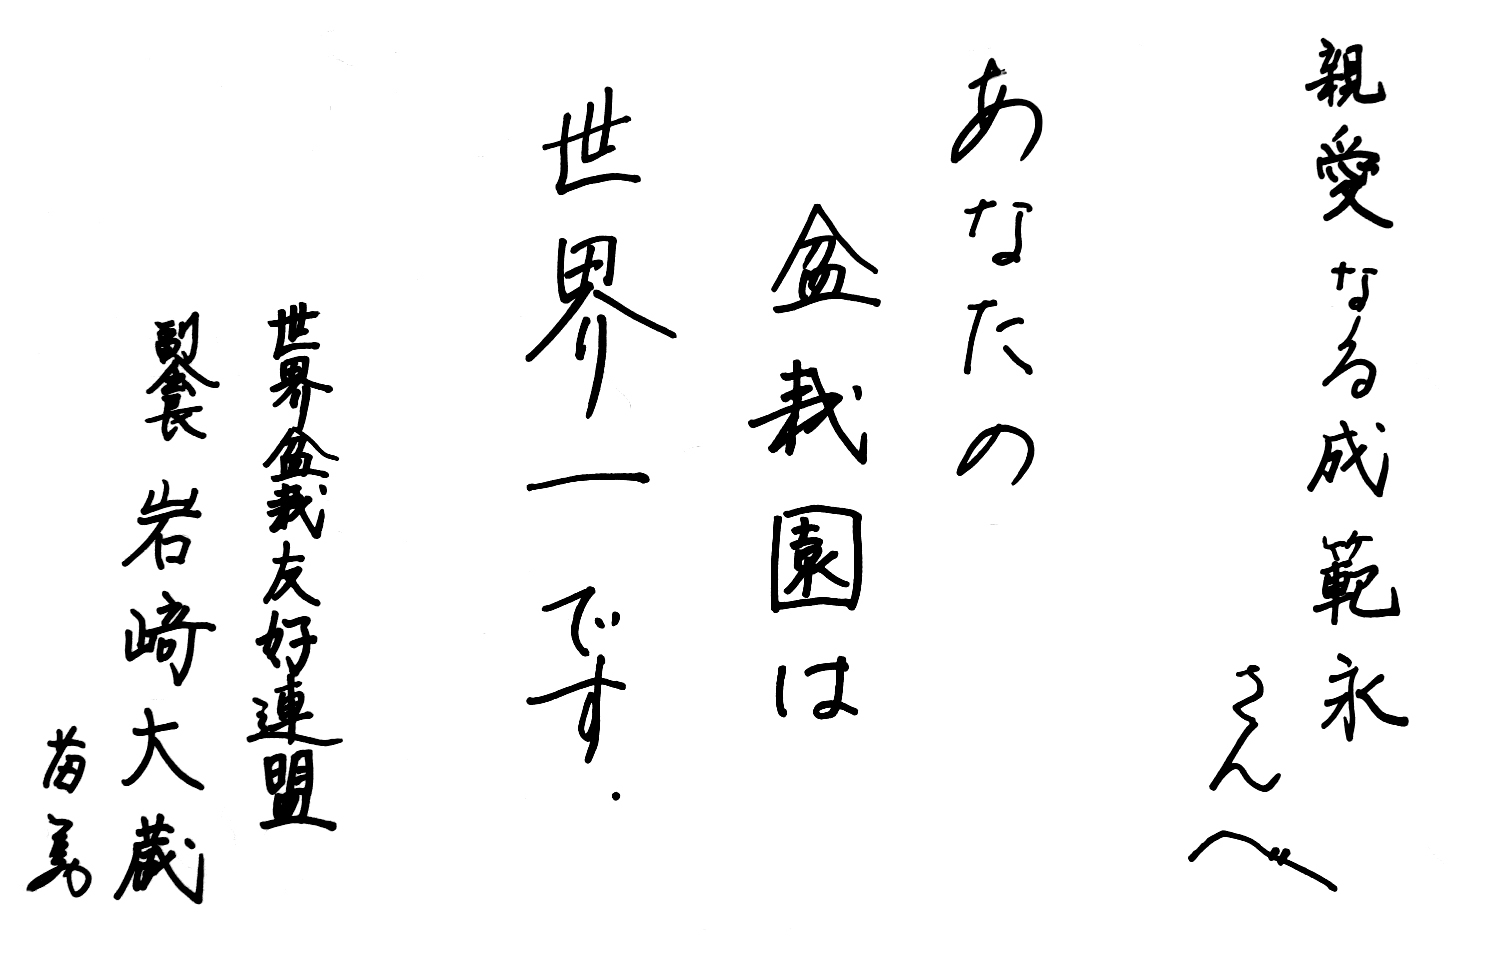 親愛なる成範永
さんへ
あなたの
盆栽園は
世界一です.
世界盆栽友好連盟
副会長 岩﨑大蔵